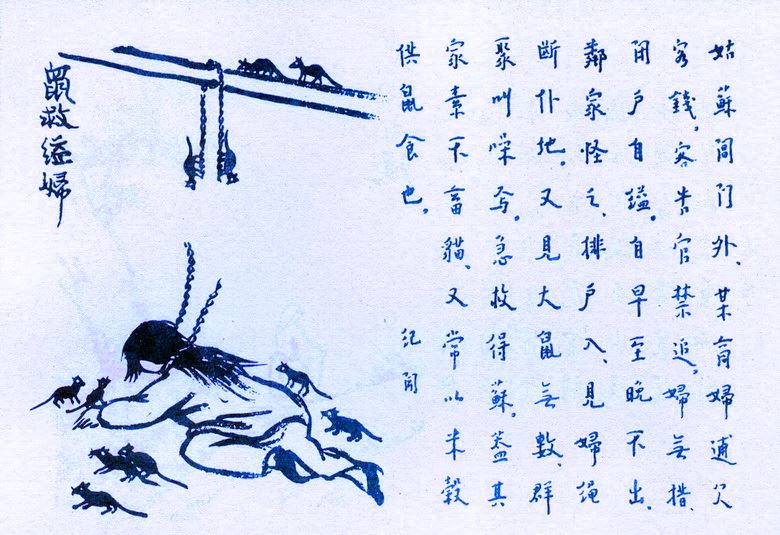 鼠救縊婦
姑蘇閶门外、某商婦逋欠
客錢。客告官禁追。婦無措、
闭户自縊。自早至晚不出、
鄰家怪之、排户入、見婦绳
斷仆地。又見大鼠無數、群
聚叫噪焉。急救得蘇。蓋其
家素不畜貓、又常以米穀
供鼠食也。 纪闻